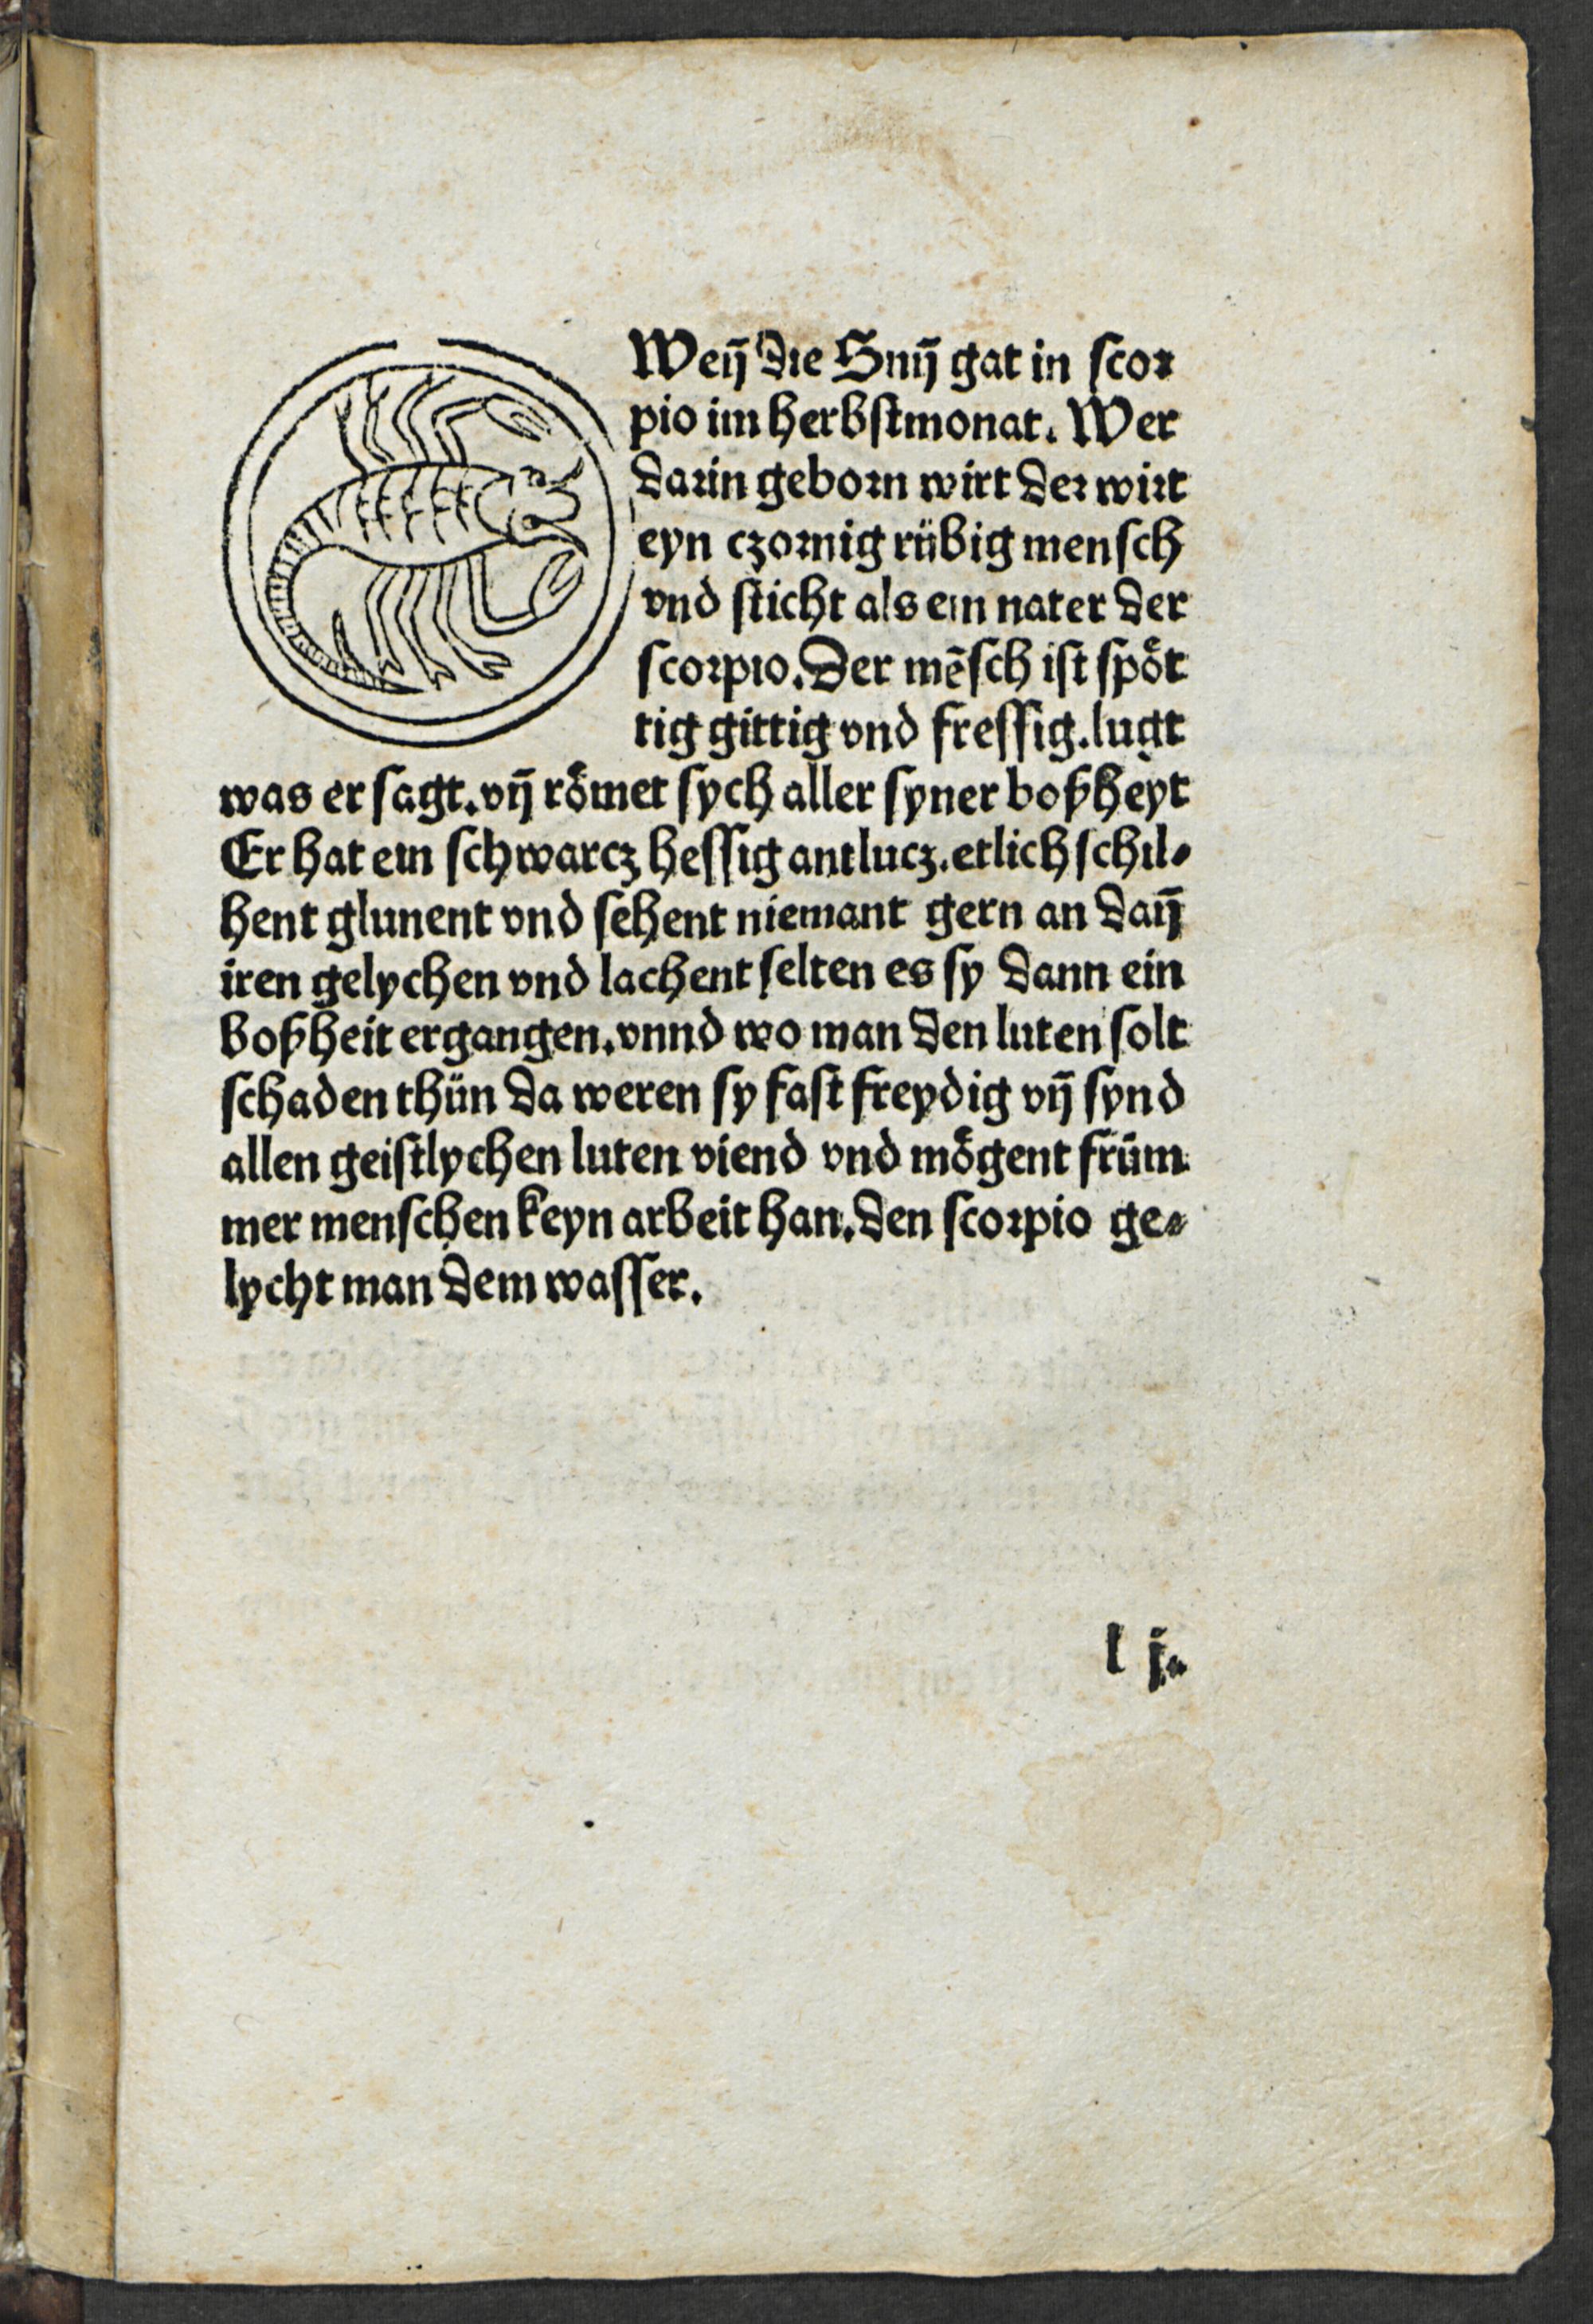 Weñ die Snñ gat in scor
pio im herbstmonat. Wer
darin geborn wirt der wirt
eyn czornig rübig mensch
vnd sticht als ein nater der
scorpio. Der mēsch ist spöt
tig gittig vnd fressig. lugt
was er sagt. vñ römet sych aller syner boßheyt
Er hat ein schwarcz hessig antlucz. etlich schil⸗
hent glunent vnd sehent niemant gern an dañ
iren gelychen vnd lachent selten es sy dann ein
boßheit ergangen. vnnd wo man den luten solt
schaden thün da weren sy fast freydig vñ synd
allen geistlychen luten viend vnd mögent früm
mer menschen keyn arbeit han. den scorpio ge⸗
lycht man dem wasser.
l j.